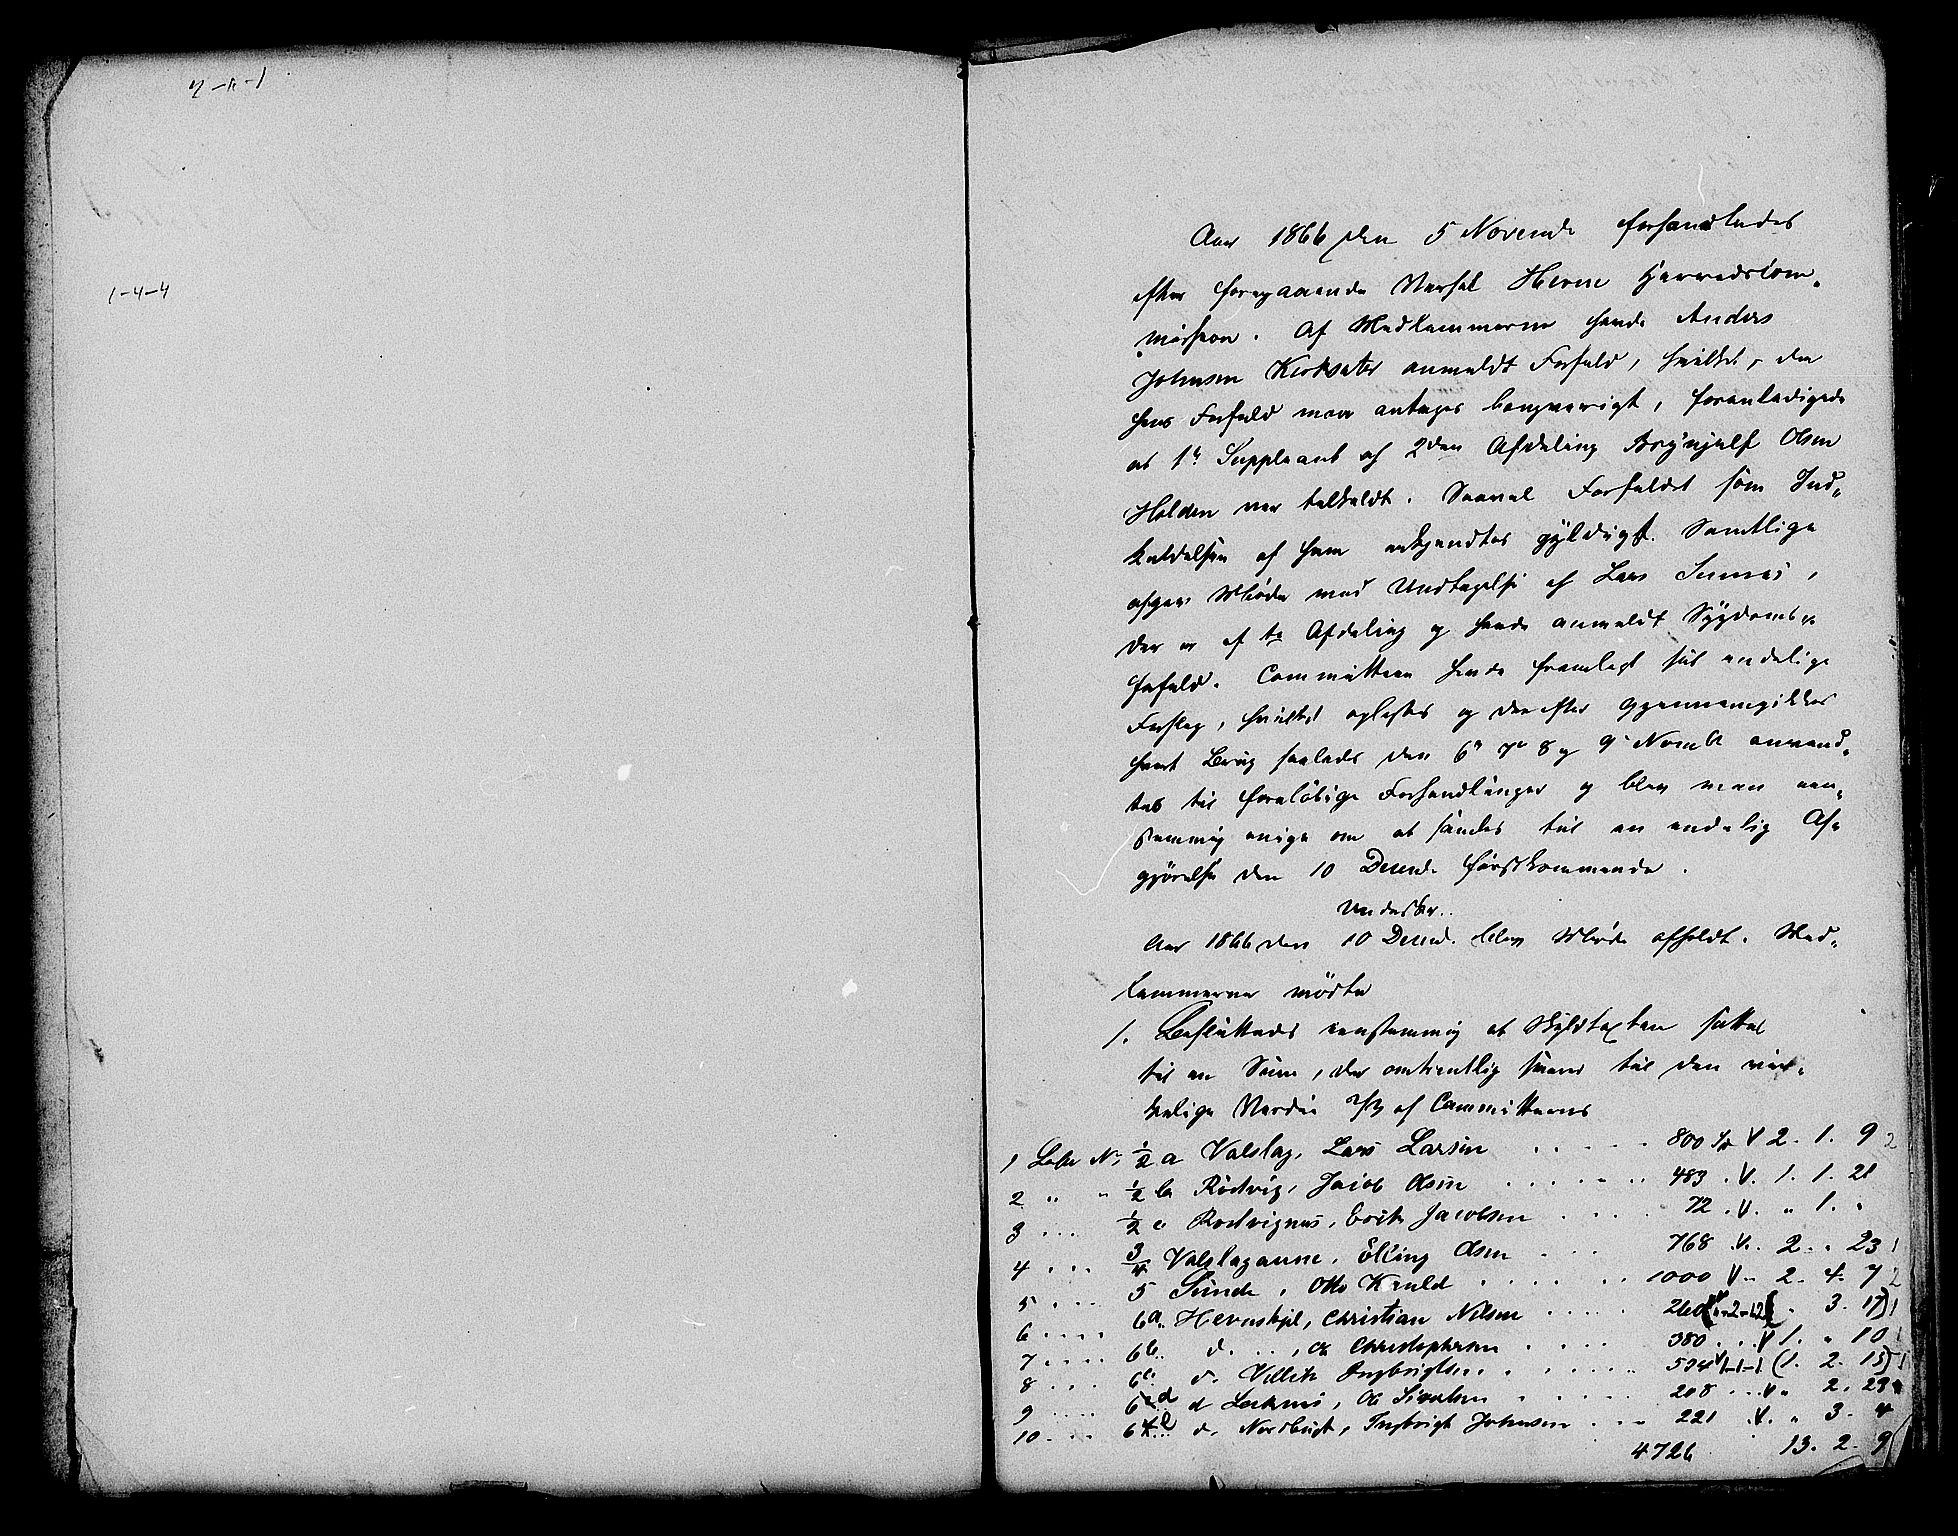 2-4-1
1-4-4
Aar 1866 den 5 Novembr forhandledes
efter foregaaende Varsel Hevne Herredscom-
mission. Af Medlemmerne havde Anders
Johnsen Kirksæter anmeldt Forfald, hvilket, da
hans Forfald maa antages langvarigt, foranledigede
at 1e Suppleant af 2den Afdeling Brynjulf Olsen
Holden var tilkaldt. Saavel Forfaldet som Ind-
kaldelsen af ham erkjendtes gyldigt. Samtlige
afgav Møde med Undtagelse af Lars
der er af 1te Afdeling og havde anmeldt Sygdoms-
forfald. Committeen havde fremlagt sit endelige
Forslag, hvilket oplæstes og derefter gjennemgikkes
hvert Brug saaledes den 6e 7e 8 og 9e Novembr anvend-
tes til foreløbige Forhandlinger og blev man een-
stemmig enige om at samles til en endelig Af-
gjørelse den 10 Decemb. førstkommende.
Underskr..
Aar 1866 den 10 Decemb. blev Møde afholdt. Med-
lemmerne mødte
1. Besluttedes eenstemmig at Skyldtaxten sattes
til en Sum, der omtrentlig svarer til den vir-
kelige Værdie 2/3 af Committeens
1 Løbe No 1/2 a Valslag, Lars Larsen 800 Sp V 2. 1. 9 2
2 " " 1/2 b Rødvig, Jacob Olsen 483 . V. 1. 1. 21
3 1/2 c Rodvignes, Erik Jacobsen 72 . V. " 1. "
4 3/4 Valslagaune, Elling Olsen 768 . V. 2. " 23 1
5 5 Sunde, Otto Kjeld 1000 V 2. 4. 7 2
6 6a. Hevneskjel, Christian Nilsen 260 (" -2-12) " 3. 17) 1
7 6b. d. , Ole Christophersen 380 V 1. " 10 1
8 6c. d. Ingbrigtsen 504 V 1-1-1 (1. 2. 15) 1
9 6d d , Ole Sivertsen 208 V " 2. 23
10 6e d. Nordbugt, Ingbrigt Johnsen 221 . V. " 3. 4
4726 13. 2. 9